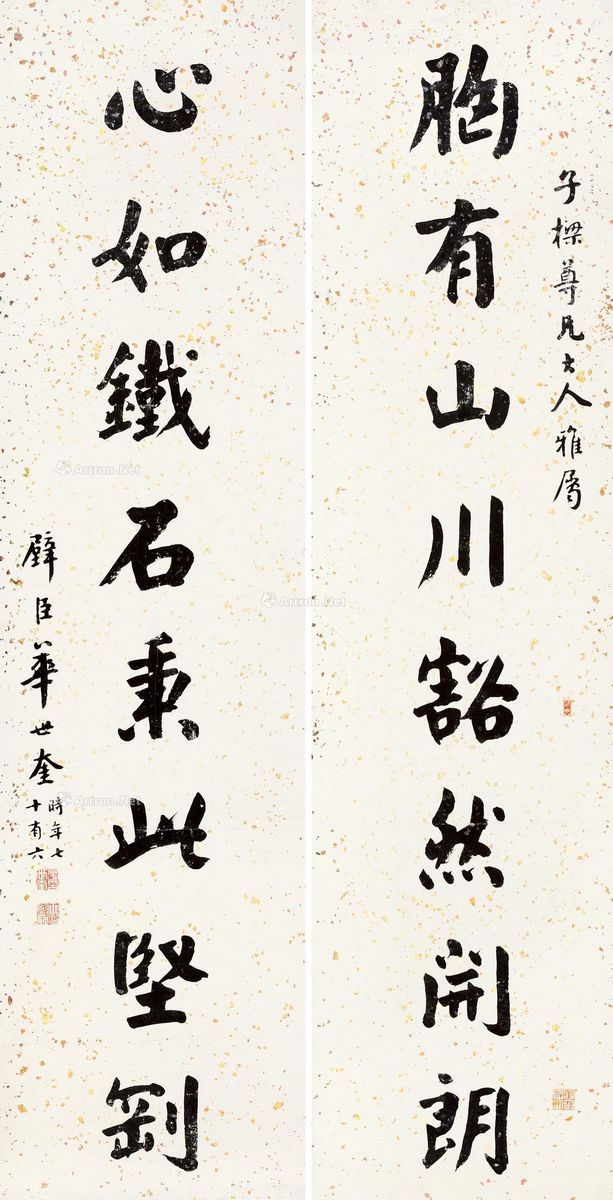 子樑尊兄大人雅屬
胸有山川豁然開朗
心如鐵石秉此堅剛
璧臣華世奎
時年七
十有六
Artron.Net
Artron.Net
Artron.Net